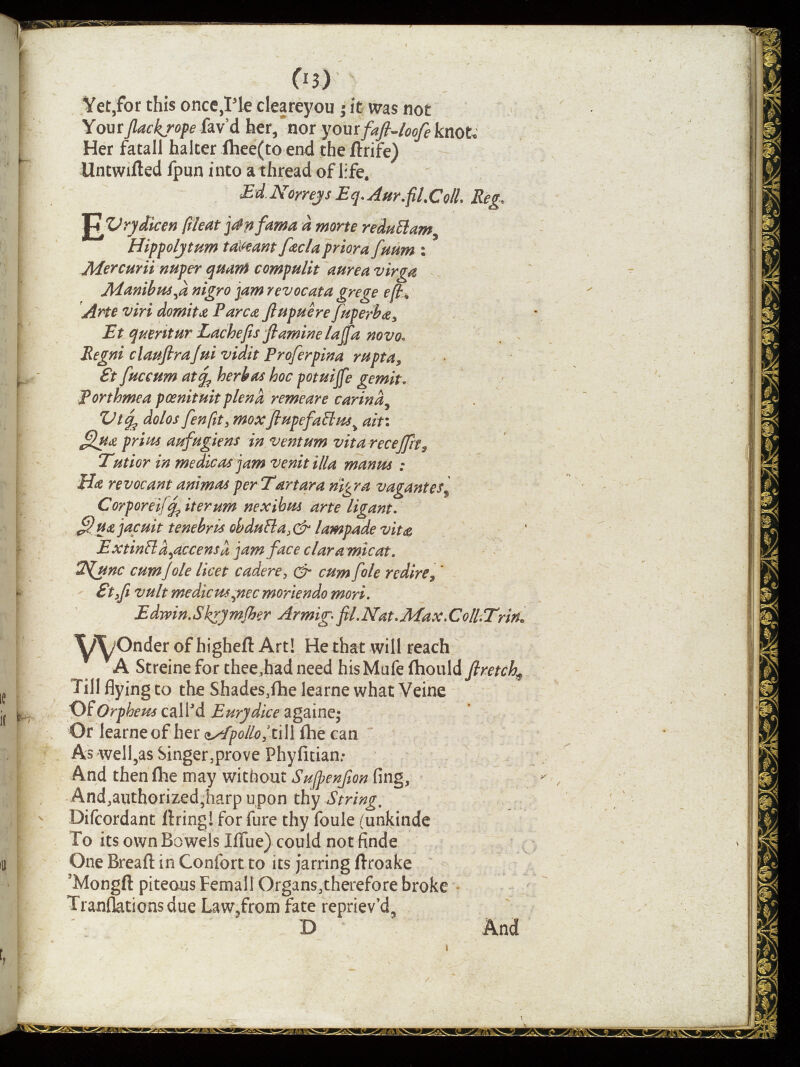 (13)
Yet,for this once,I'le cleareyou ; it was not
Your ſlack rope ſav'd her, nor your faſt-looſe knot.
Her fatall halter ſhee(to end the ſtrife)
Untwiſted ſpun into a thread of life.
Ed. Norreys Eq. Aur. fil. Coll. Reg.
EUrydicen ſileat jam fama à morte reductam,
Hippolytum taceant ſæcla priora ſuum :
Mercurii nuper quam compulit aurea virga
Manibus,à nigro jam revocata grege eſt.
Arte viri domitæ Parcæ ſtupuêre ſuperbæ,
Et queritur Lacheſis ſtamine laſſa novo.
Regni clauſtra ſui vidit Proſerpina rupta,
Et ſuccum atq; herbas hoc potuiſſe gemit.
Porthmea pœnituit plenâ remeare carinâ,
Utq; dolos ſenſit, mox ſtupefactus, ait:
Quæ prius aufugiens in ventum vita receſſit,
Tutior in medicas jam venit illa manus :
Hæ revocant animas per Tartara nigra vagantes,
Corporeiſq; iterum nexibus arte ligant.
Quæ jacuit tenebris obducta,& lampade vitæ
Extinctâ,accensâ jam face clara micat.
Nunc cum ſole licet cadere, & cum ſole redire,
Et,ſi vult medicus,nec moriendo mori.
Edwin.Skrymſher Armig. fil.Nat.Max.Coll.Trin.
WOnder of higheſt Art! He that will reach
A Streine for thee,had need his Muſe ſhould ſtretch,
Till flying to the Shades,ſhe learne what Veine
Of Orpheus call'd Eurydice againe;
Or learne of her Apollo,'till ſhe can
As well,as Singer,prove Phyſitian:
And then ſhe may without Suſpenſion ſing,
And,authorized,harp upon thy String.
Diſcordant ſtring! for ſure thy foule (unkinde
To its own Bowels Iſſue) could not finde
One Breaſt in Conſort to its jarring ſtroake
'Mongſt piteous Femall Organs,therefore broke
Tranſlations due Law,from fate repriev'd,
D And